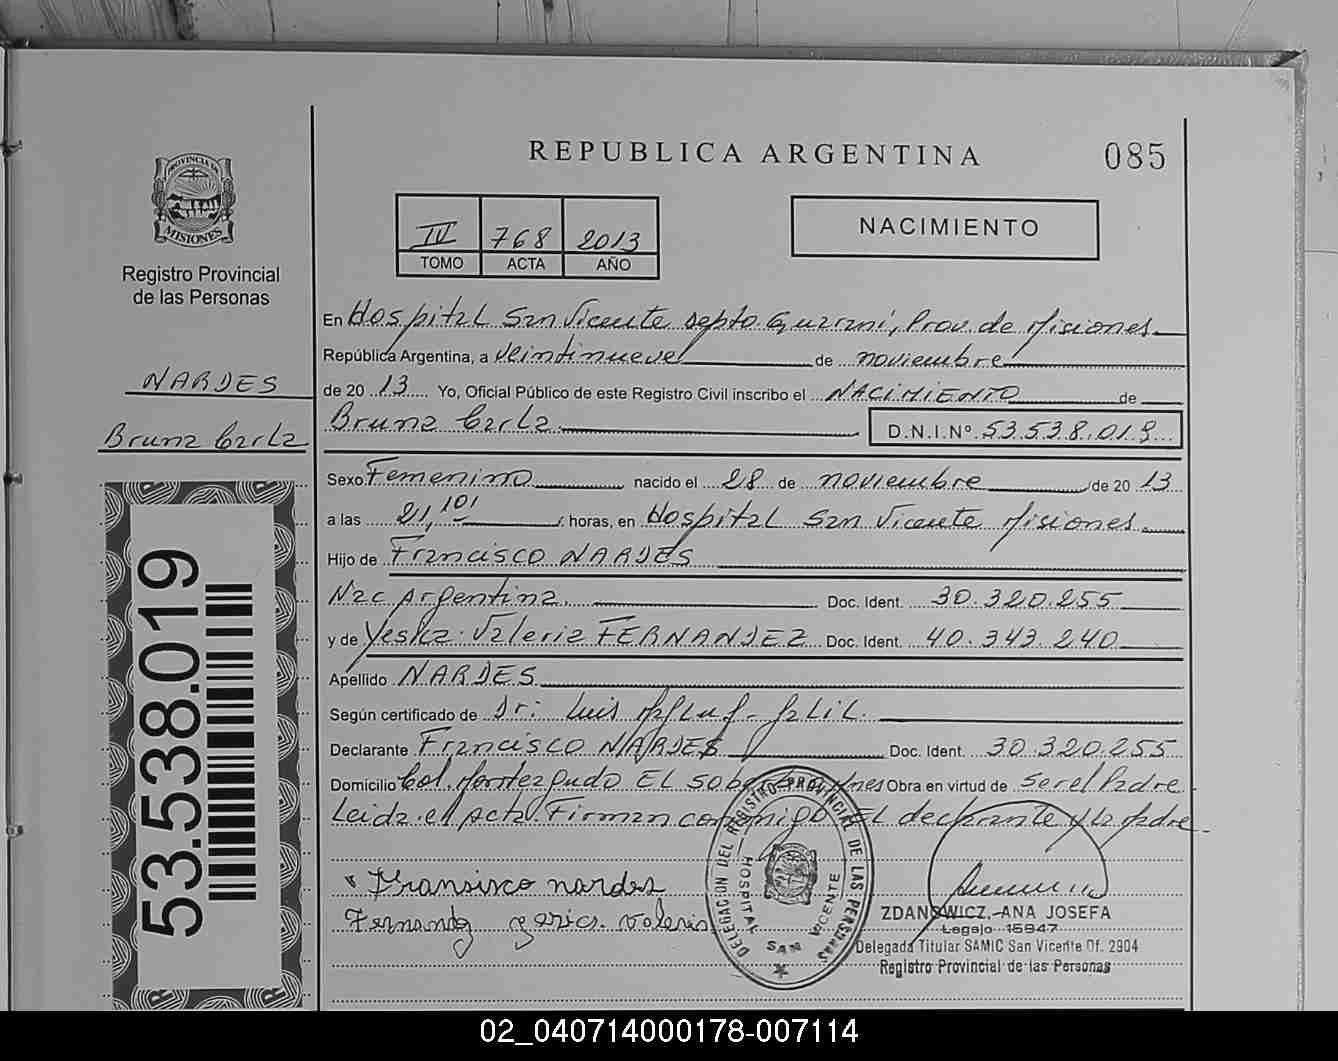 REPUBLICA ARGENTINA
085
PROVINCIA DE
MISIONES
Registro Provincial
de las Personas
IV 768 2013
TOMO ACTA AÑO
NACIMIENTO
NARDES
Bruna Carla
53.538.019
En Hospital San Vicente Depto Guarani, Prov. de Misiones
República Argentina, a veintinueve de noviembre
de 20 13 Yo, Oficial Público de este Registro Civil inscribo el NACIMIENTO de
Bruna Carla D.N.I.Nº 53.538.019
Sexo Femenino nacido el 28 de noviembre de 20 13
a las 21,10 horas, en Hospital San Vicente Misiones
Hijo de Francisco NARDES
Nac Argentina. Doc. Ident. 30.320.255
y de Valeria FERNANDEZ Doc. Ident. 40.343.240
Apellido NARDES
Según certificado de Dr: Luis
Declarante Francisco NARDES Doc. Ident. 30.320.255
Domicilio Col. Monteagudo EL Obra en virtud de Ser el Padre
Leida el Acta Firman conmigo EL declarante y la Madre
Fransisco nardes
Valeria
DELEGACION DEL REGISTRO PROVINCIAL DE LAS PERSONAS
HOSPITAL SAN VICENTE
ZDANOWICZ, ANA JOSEFA
Legajo 15947
Delegada Titular SAMIC San Vicente Of. 2904
Registro Provincial de las Personas
02_040714000178-007114